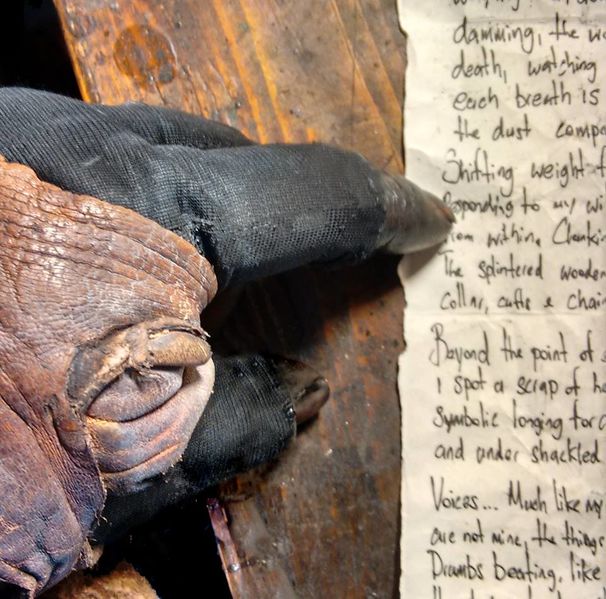 damming, the
death, watching
each breath is
the dust
Shifting weight
Responding to my
from within. Clanking
The splintered wooden
Collar, cuffs & chain
Beyond the point of
I spot a scrap of
Symbolic longing for
and under shackled
Voices... Much like my
are not mine, the things
Drumbs beating, like